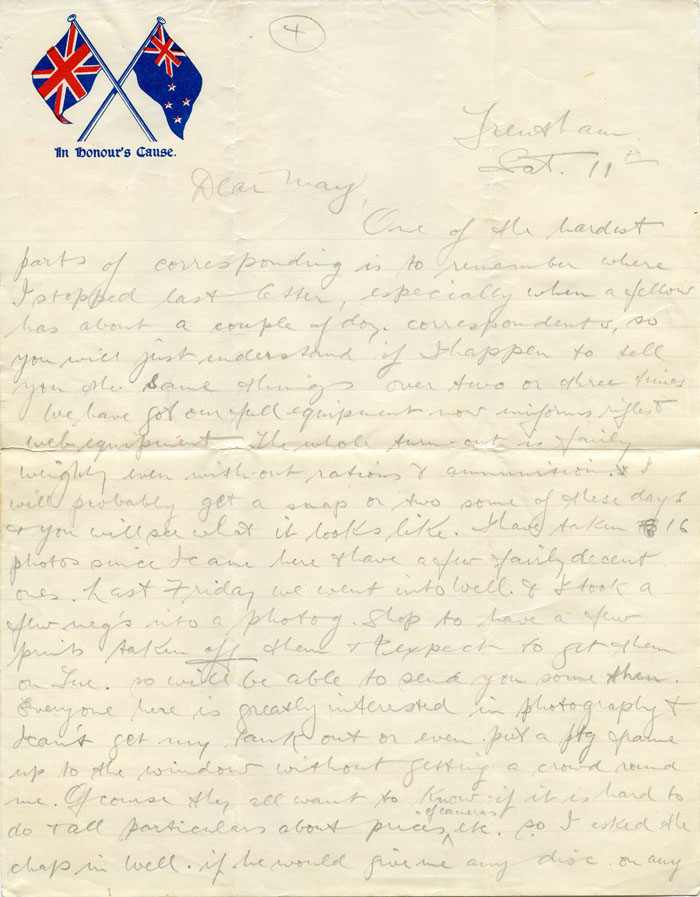 4
In Honour's Cause.
Trentham
Sat. 11th
Dear May,
One of the hardest
parts of corresponding is to remember where
I stopped last letter, especially when a fellow
has about a couple of doz. correspondents, so
you will just understand if I happen to tell
you the same things over two or three times
We have got our full equipment now uniforms, rifles &
web equipment The whole turn-out is fairly
weighty even without rations & ammunition. I
will probably get a snap or two some of these days
& you will see what it looks like. I have taken 16
photos since I came here & have a few fairly decent
ones. Last Friday we went into Well. & I took a
few neg's into a photog. Shop to have a few
prints taken off them & I expect to get them
on Tue. so will be able to send you some then.
Everyone here is greatly interested in photography &
I can't get my tank out or even put a ptg frame
up to the window without getting a crowd round
me. Of course they all want to know if it is hard to
do & all particulars about prices of cameras etc. so I asked the
chap in Well. if he would give me any disc. on any